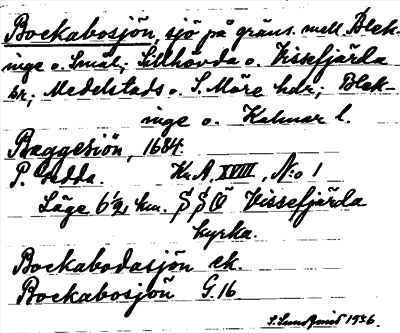 Bockabosjön, sjö på gräns. mell. Blek-
inge o. Smål.; Sillhövda o. Vissefjärda
sr; Medelstads o. S. Möre hdr; Blek-
inge o. Kalmar l.
Baggesiön, 1684.
P. Gedda. Kr. A. XVIII, N:o 1
Läge 6½ km. S S V Vissefjärda
kyrka.
Bockabodasjön ek.
Bockabosjön G. 16
S. Sundquist 1936.